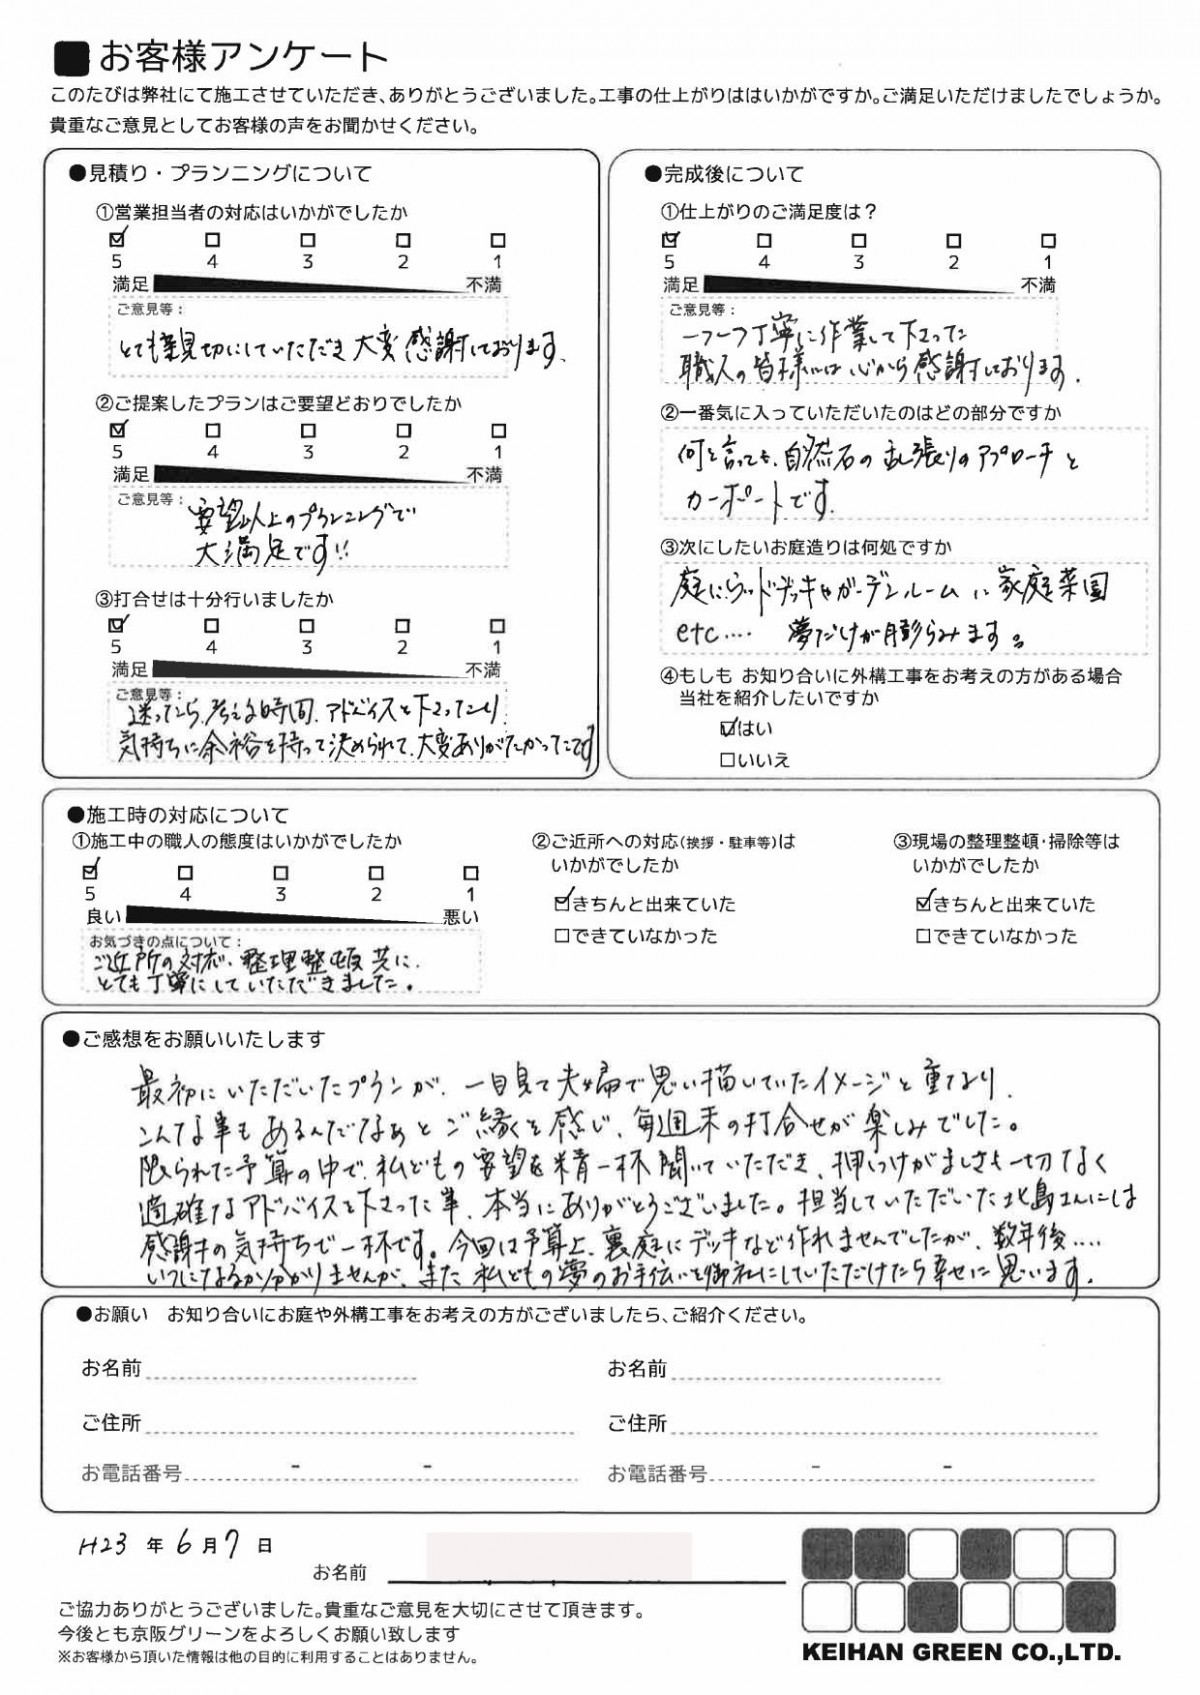 ■お客様アンケート
このたびは弊社にて施工させていただき、ありがとうございました。工事の仕上がりははいかがですか。ご満足いただけましたでしょうか。
貴重なご意見としてお客様の声をお聞かせください。
●見積り・プランニングについて
①営業担当者の対応はいかがでしたか
☑ □ □ □ □
5 4 3 2 1
満足 不満
ご意見等:
とても親切にしていただき大変感謝しております、
②ご提案したプランはご要望どおりでしたか
☑ □ □ □ □
5 4 3 2 1
満足 不満
ご意見等:
要望以上のプランニングで
大満足です!!
③打合せは十分行いましたか
☑ □ □ □ □
5 4 3 2 1
満足 不満
ご意見等:
迷ったら、考える時間、アドバイスを下さったり、
気持ちに余裕を持って決められて、大変ありがたかったです
●完成後について
①仕上がりのご満足度は?
☑ □ □ □ □
5 4 3 2 1
満足 不満
ご意見等:
一つ一つ丁寧に作業して下さった
職人の皆様には心から感謝しております.
②一番気に入っていただいたのはどの部分ですか
何と言っても、自然石の乱張りのアプローチと
カーポートです.
③次にしたいお庭造りは何処ですか
庭にウッドデッキやガーデンルームに家庭菜園
etc‥‥ 夢だけが膨らみます。
④もしも お知り合いに外構工事をお考えの方がある場合
当社を紹介したいですか
☑はい
□いいえ
●施工時の対応について
①施工中の職人の態度はいかがでしたか
☑ □ □ □ □
5 4 3 2 1
良い 悪い
お気づきの点について:
ご近所の対応、整理整頓共に、
とても丁寧にしていただきました。
②ご近所への対応(挨拶・駐車等)は
いかがでしたか
☑きちんと出来ていた
□できていなかった
③現場の整理整頓・掃除等は
いかがでしたか
☑きちんと出来ていた
□できていなかった
●ご感想をお願いいたします
最初にいただいたプランが、一目見て夫婦で思い描いていたイメージと重なり、
こんな事もあるんだなぁとご縁を感じ、毎週末の打合せが楽しみでした。
限られた予算の中で、私どもの要望を精一杯聞いていただき、押しつけがましさも一切なく
適確なアドバイスを下さった事、本当にありがとうございました。担当していただいた北島さんには
感謝の気持ちで一杯です。今回は予算上、裏庭にデッキなど作れませんでしたが、数年後‥‥
いつになるか分かりませんが、また私どもの夢のお手伝いを御社にしていただけたら幸せに思います.
●お願い お知り合いにお庭や外構工事をお考えの方がございましたら、ご紹介ください。
お名前 お名前
ご住所 ご住所
お電話番号 - - お電話番号 - -
H23 年 6 月 7 日
お名前
ご協力ありがとうございました。貴重なご意見を大切にさせて頂きます。
今後とも京阪グリーンをよろしくお願い致します
※お客様から頂いた情報は他の目的に利用することはありません。
KEIHAN GREEN CO.,LTD.